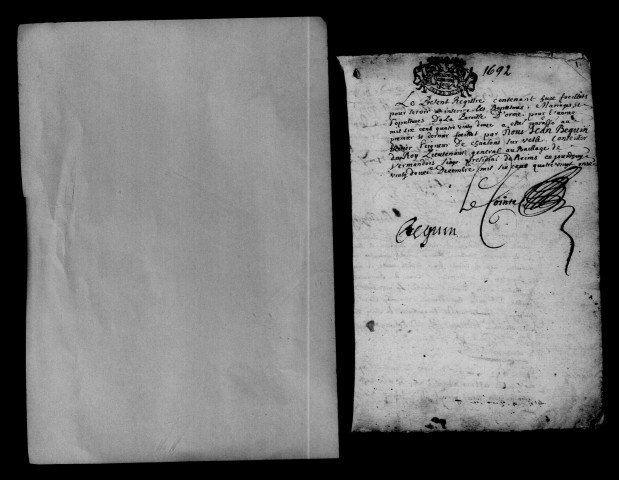 1692
1
Le Present Registre contenant huit feuillets
pour servir a inscrire les Baptesmes, Mariages et
Sepultures De la Paroisse D'orme pour l'annee
mil six cens quatre vingt douze a esté paraffé au
premier et dernier feuillet par Nous Jean Bequin
Seigneur de Chaalons sur vesle Conseiller
du Roy Lieutenant general au Bailliage de
Vermandois Siege Presidial de Reims ce jourdhuy
vingt Decembre mil six cens quatre vingt onze
Le Cointe
Bequin